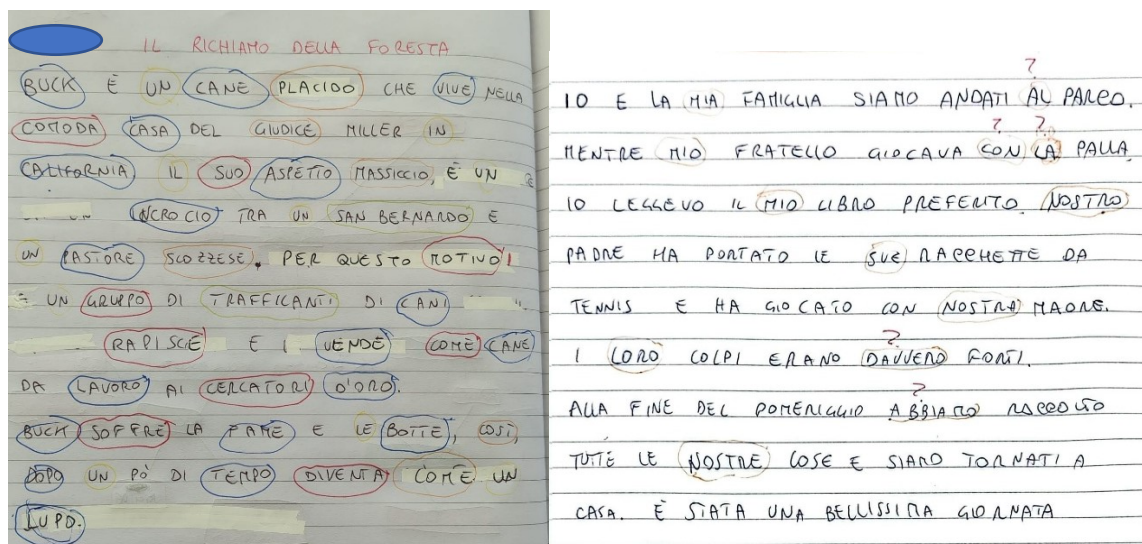 IL RICHIAMO DELLA FORESTA
BUCK È UN CANE PLACIDO CHE VIVE NELLA
COMODA CASA DEL GIUDICE MILLER IN
CALIFORNIA IL SUO ASPETTO MASSICCIO, È UN
INCROCIO TRA UN SAN BERNARDO E
UN PASTORE SCOZZESE. PER QUESTO MOTIVO
UN GRUPPO DI TRAFFICANTI DI CANI
RAPISCE E VENDE COME CANE
DA LAVORO AI CERCATORI D'ORO.
BUCK SOFFRE LA FAME E LE BOTTE, COSÌ,
DOPO UN PÒ DI TEMPO DIVENTA COME UN
LUPO.
?
IO E LA MIA FAMIGLIA SIAMO ANDATI AL PARCO.
? ?
MENTRE MIO FRATELLO GIOCAVA CON LA PALLA
IO LEGGEVO IL MIO LIBRO PREFERITO. NOSTRO
PADRE HA PORTATO LE SUE RACCHETTE DA
TENNIS E HA GIOCATO CON NOSTRA MADRE.
?
I LORO COLPI ERANO DAVVERO FORTI.
?
ALLA FINE DEL POMERIGGIO ABBIAMO RACCOLTO
TUTTE LE NOSTRE COSE E SIAMO TORNATI A
CASA. È STATA UNA BELLISSIMA GIORNATA